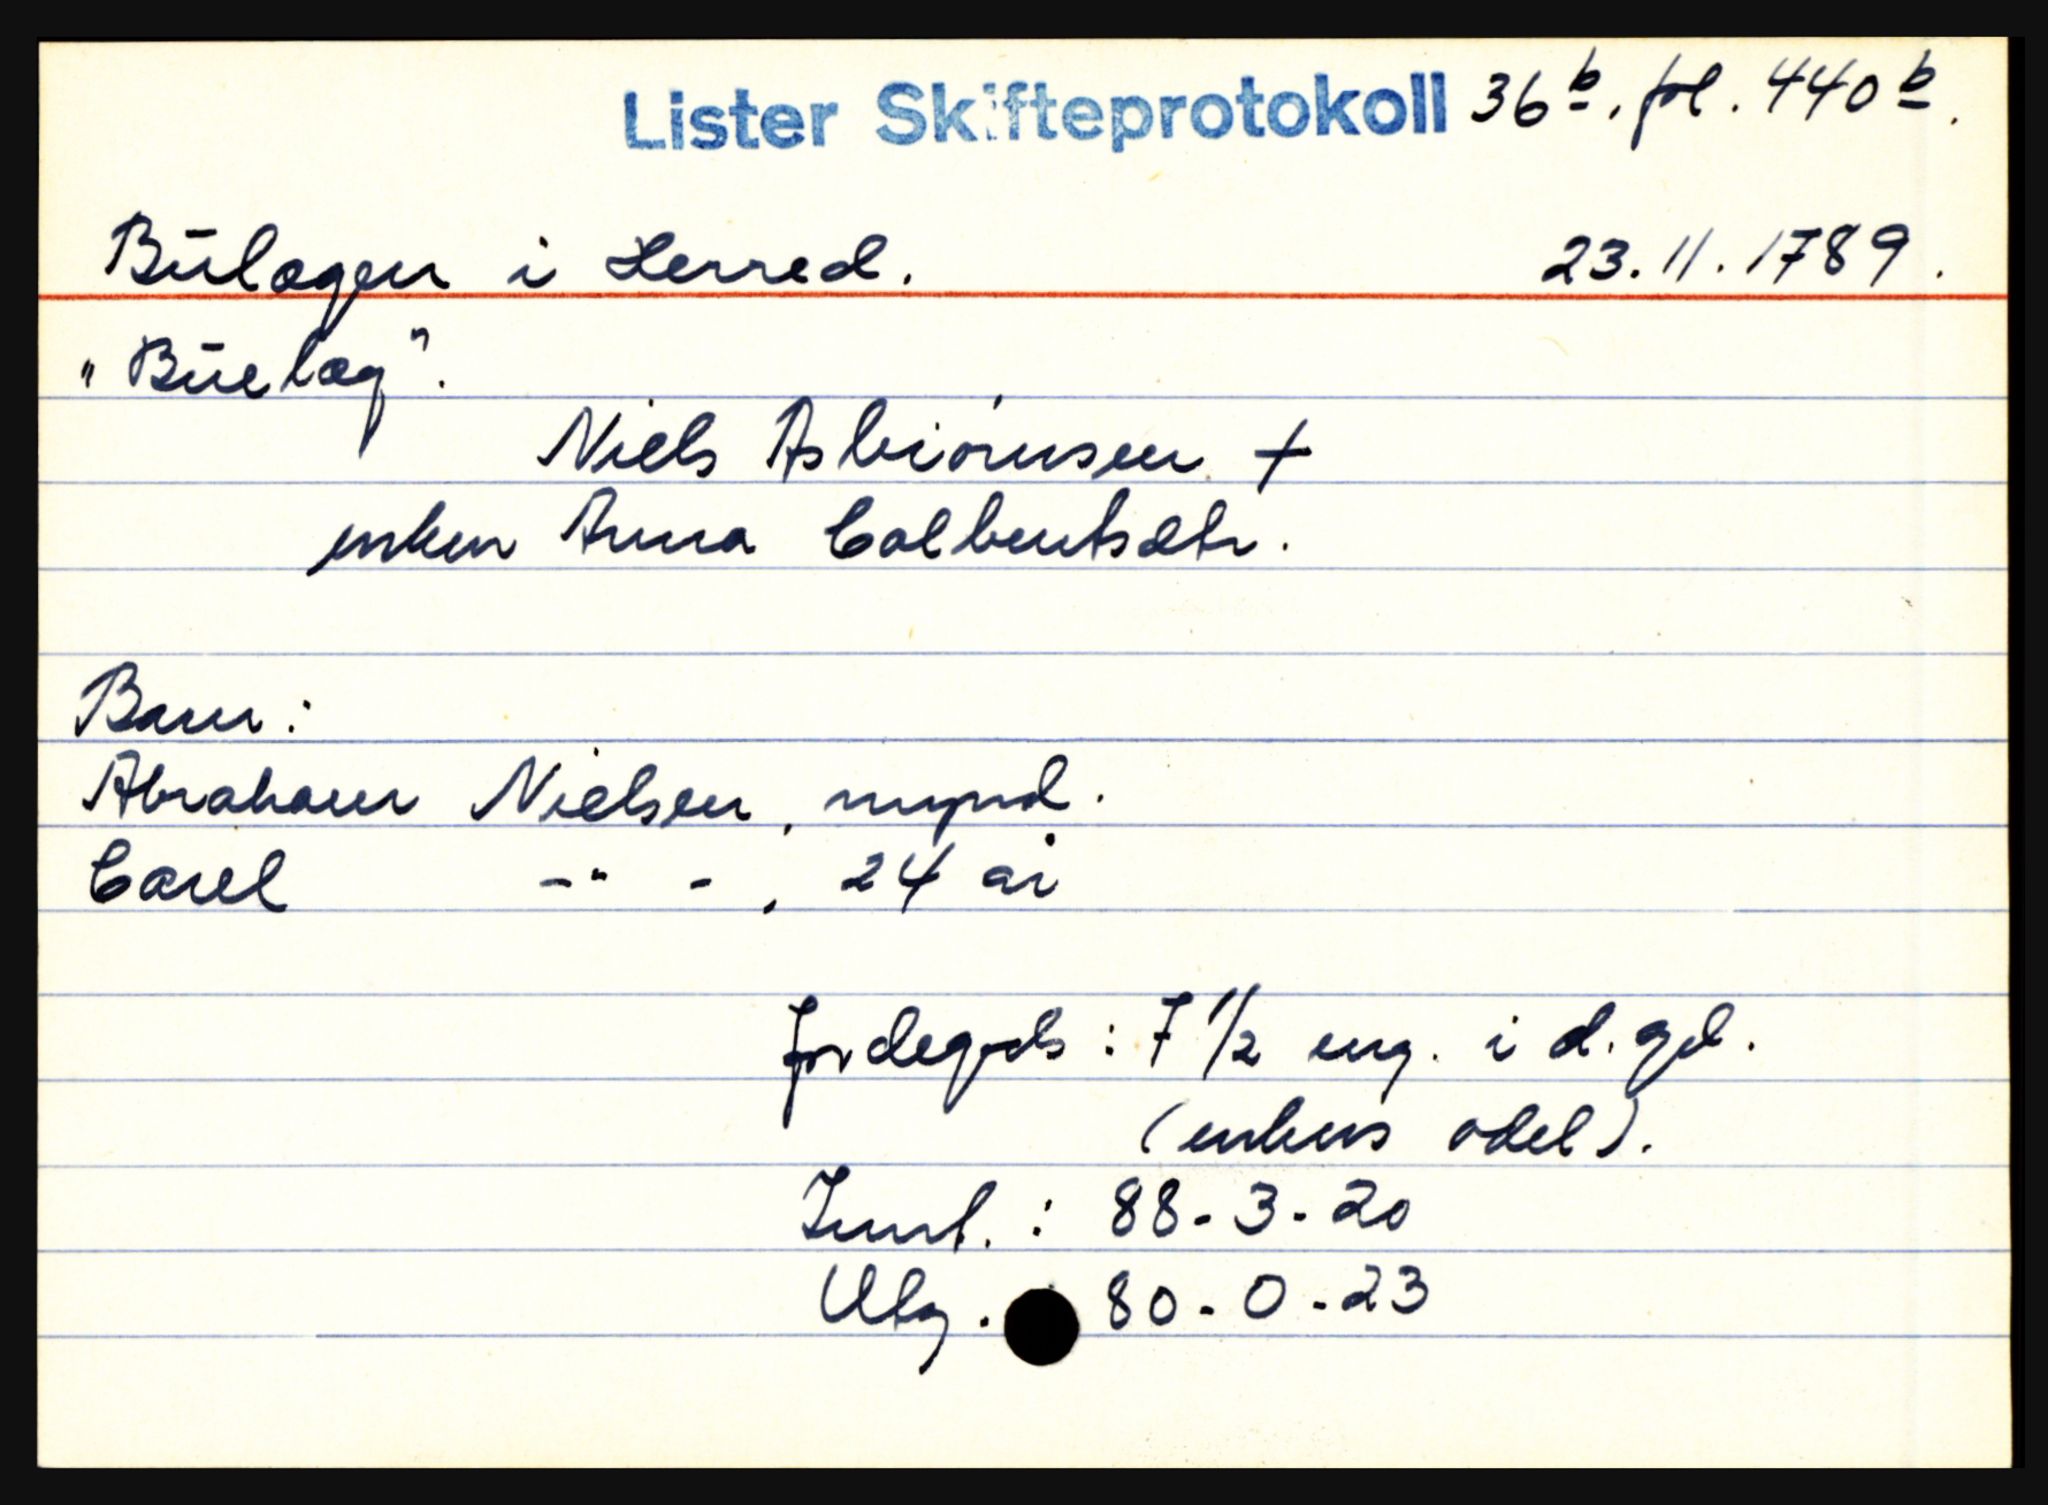 Lister Skifteprotokoll 36 b. fol. 440 b.
Būlagen i Herred. 23.11.1789.
"Būelag".
Niels Asbiórnsen +
enken Anna Colbentsdtr.
Barn:
Abraham Nielsen, mynd.
Carel -"-, 24 år
Jordegods: 7 1/2 eng. i d. gd.
(enkens odel).
Innt.: 88-3-20
Utg. 80-0-23